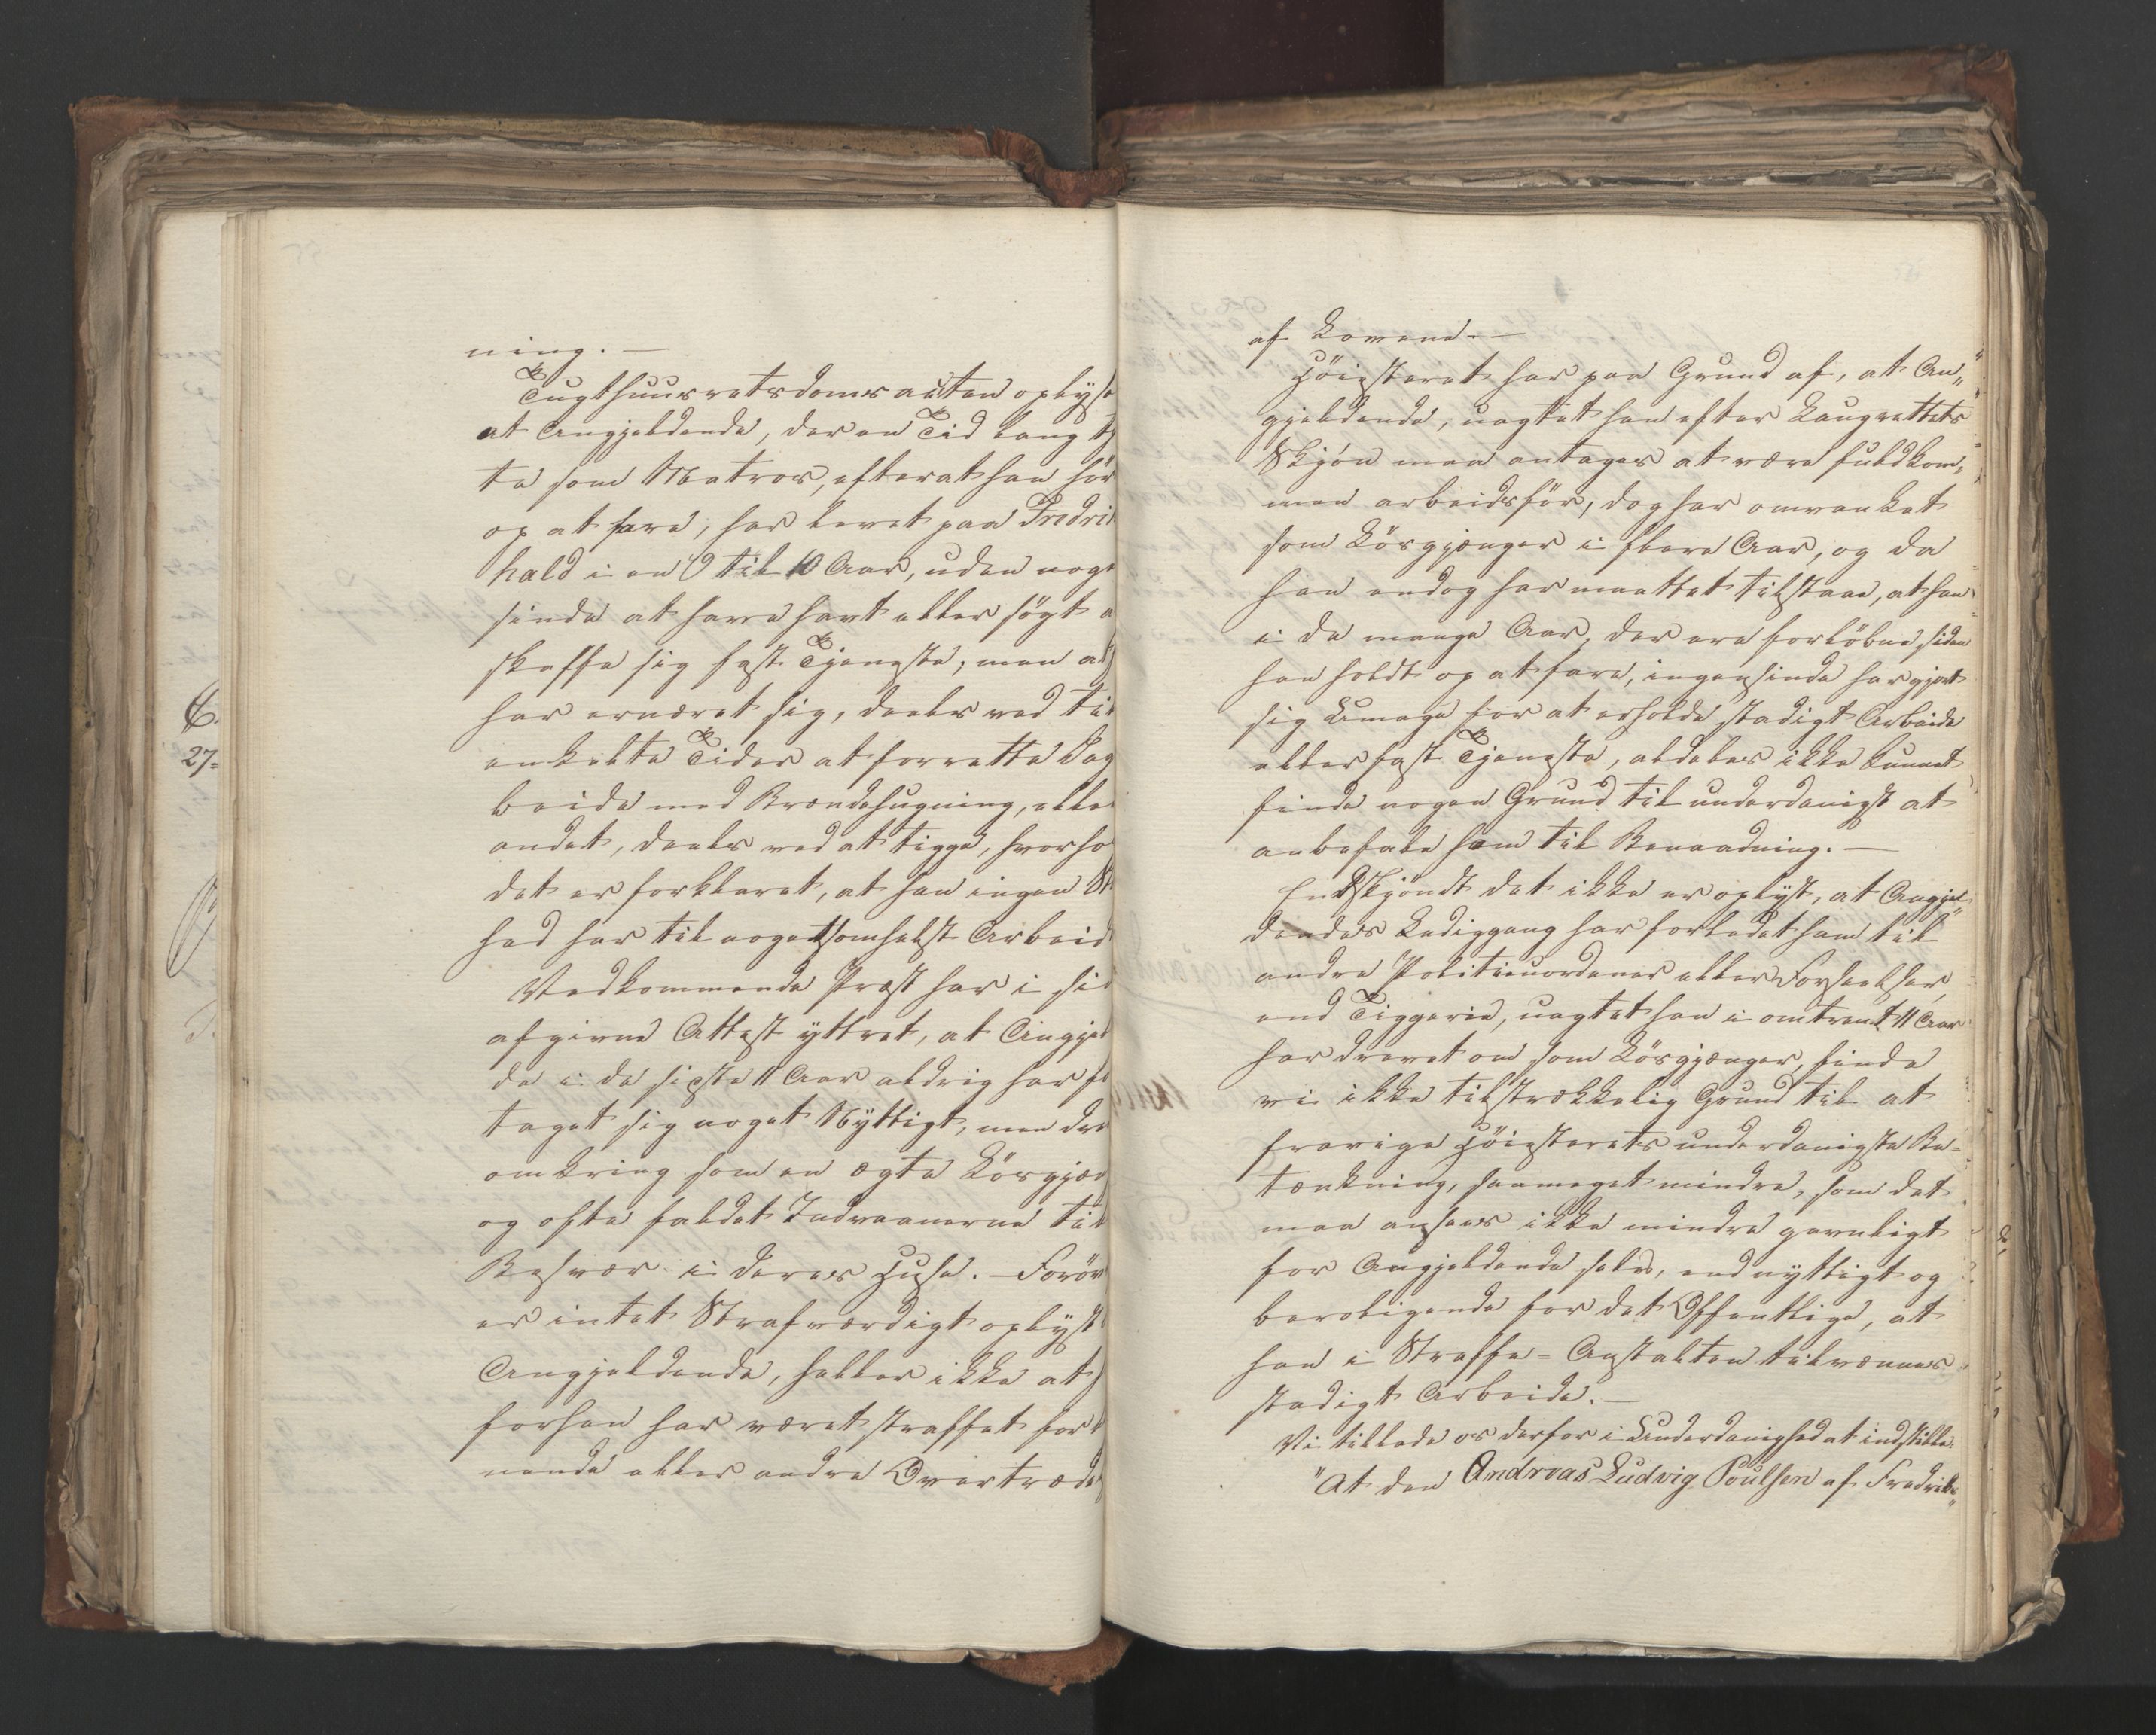 ning. —
Tugthuusretsdomsacten oplyse
at Angjeldende, der en Tid lang tj
te som Matros, efterat han hör
op at fare, har levet paa Fredri
hald i en 9 til 10 Aar, uden noge
sinde at have havt eller sögt a
skaffe sig fast Tjeneste; men at
har ernæret sig, deels ved til
enkelte Tider at forrette Dag
beide med Brændehugning, elle
andet, deels ved at tigge, hvorho
det er forklaret, at han ingen St
had har til nogetsomhelst Arbeid
Vedkommende Præst har i sid
afgivne Attest yttret, at Angjel
de i de sidste 11 Aar aldrig har fo
taget sig noget Nyttigt, men dre
omkring som en ægte Lösgjæn
og ofte faldet Indvaanerne til
Besvær i deres Huse. — Foröv
er intet Strafværdigt oplyst
Angjeldende, heller ikke at h
forhen har været straffet for l
nende eller andre Overtræde
af Lovene. —
Höiesteret har paa Grund af, at An„
gjeldende, uagtet han efter Laugrettets
Skjön maa antages at være fuldkom„
men arbeidsför, dog har omvanket
som Lösgjænger i flere Aar, og da
han endog har maattet tilstaae, at han
i de mange Aar, der ere forlöbne, siden
han holdt op at fare, ingensinde har gjort
sig Umage for at erholde stadigt Arbeide
eller fast Tjeneste, aldeles ikke kunnet
finde nogen Grund til underdanigst at
anbefale ham til Benaadning. —
Endskjöndt det ikke er oplyst, at Angjel„
dendes Lediggang har forledet ham til
andre Politieuordener eller Forseelser,
end Tiggerie, uagtet han i omtrent 11 Aar
har drevet om som Lösgjænger, finde
vi ikke tilstrækkelig Grund til at
fravige Höiesterets underdanigste Be-
tænkning, saameget mindre, som det
maa ansees ikke mindre gavnligt
for Angjeldende selv, end nyttigt og
beroligende for det Offentlige, at
han i Straffe-Anstalten tilvænnes
stadigt Arbeide. —
Vi tillade os derfor i Underdanighed at indstille:
"At den Andreas Ludvig Poulsen af Fredriks„
27-